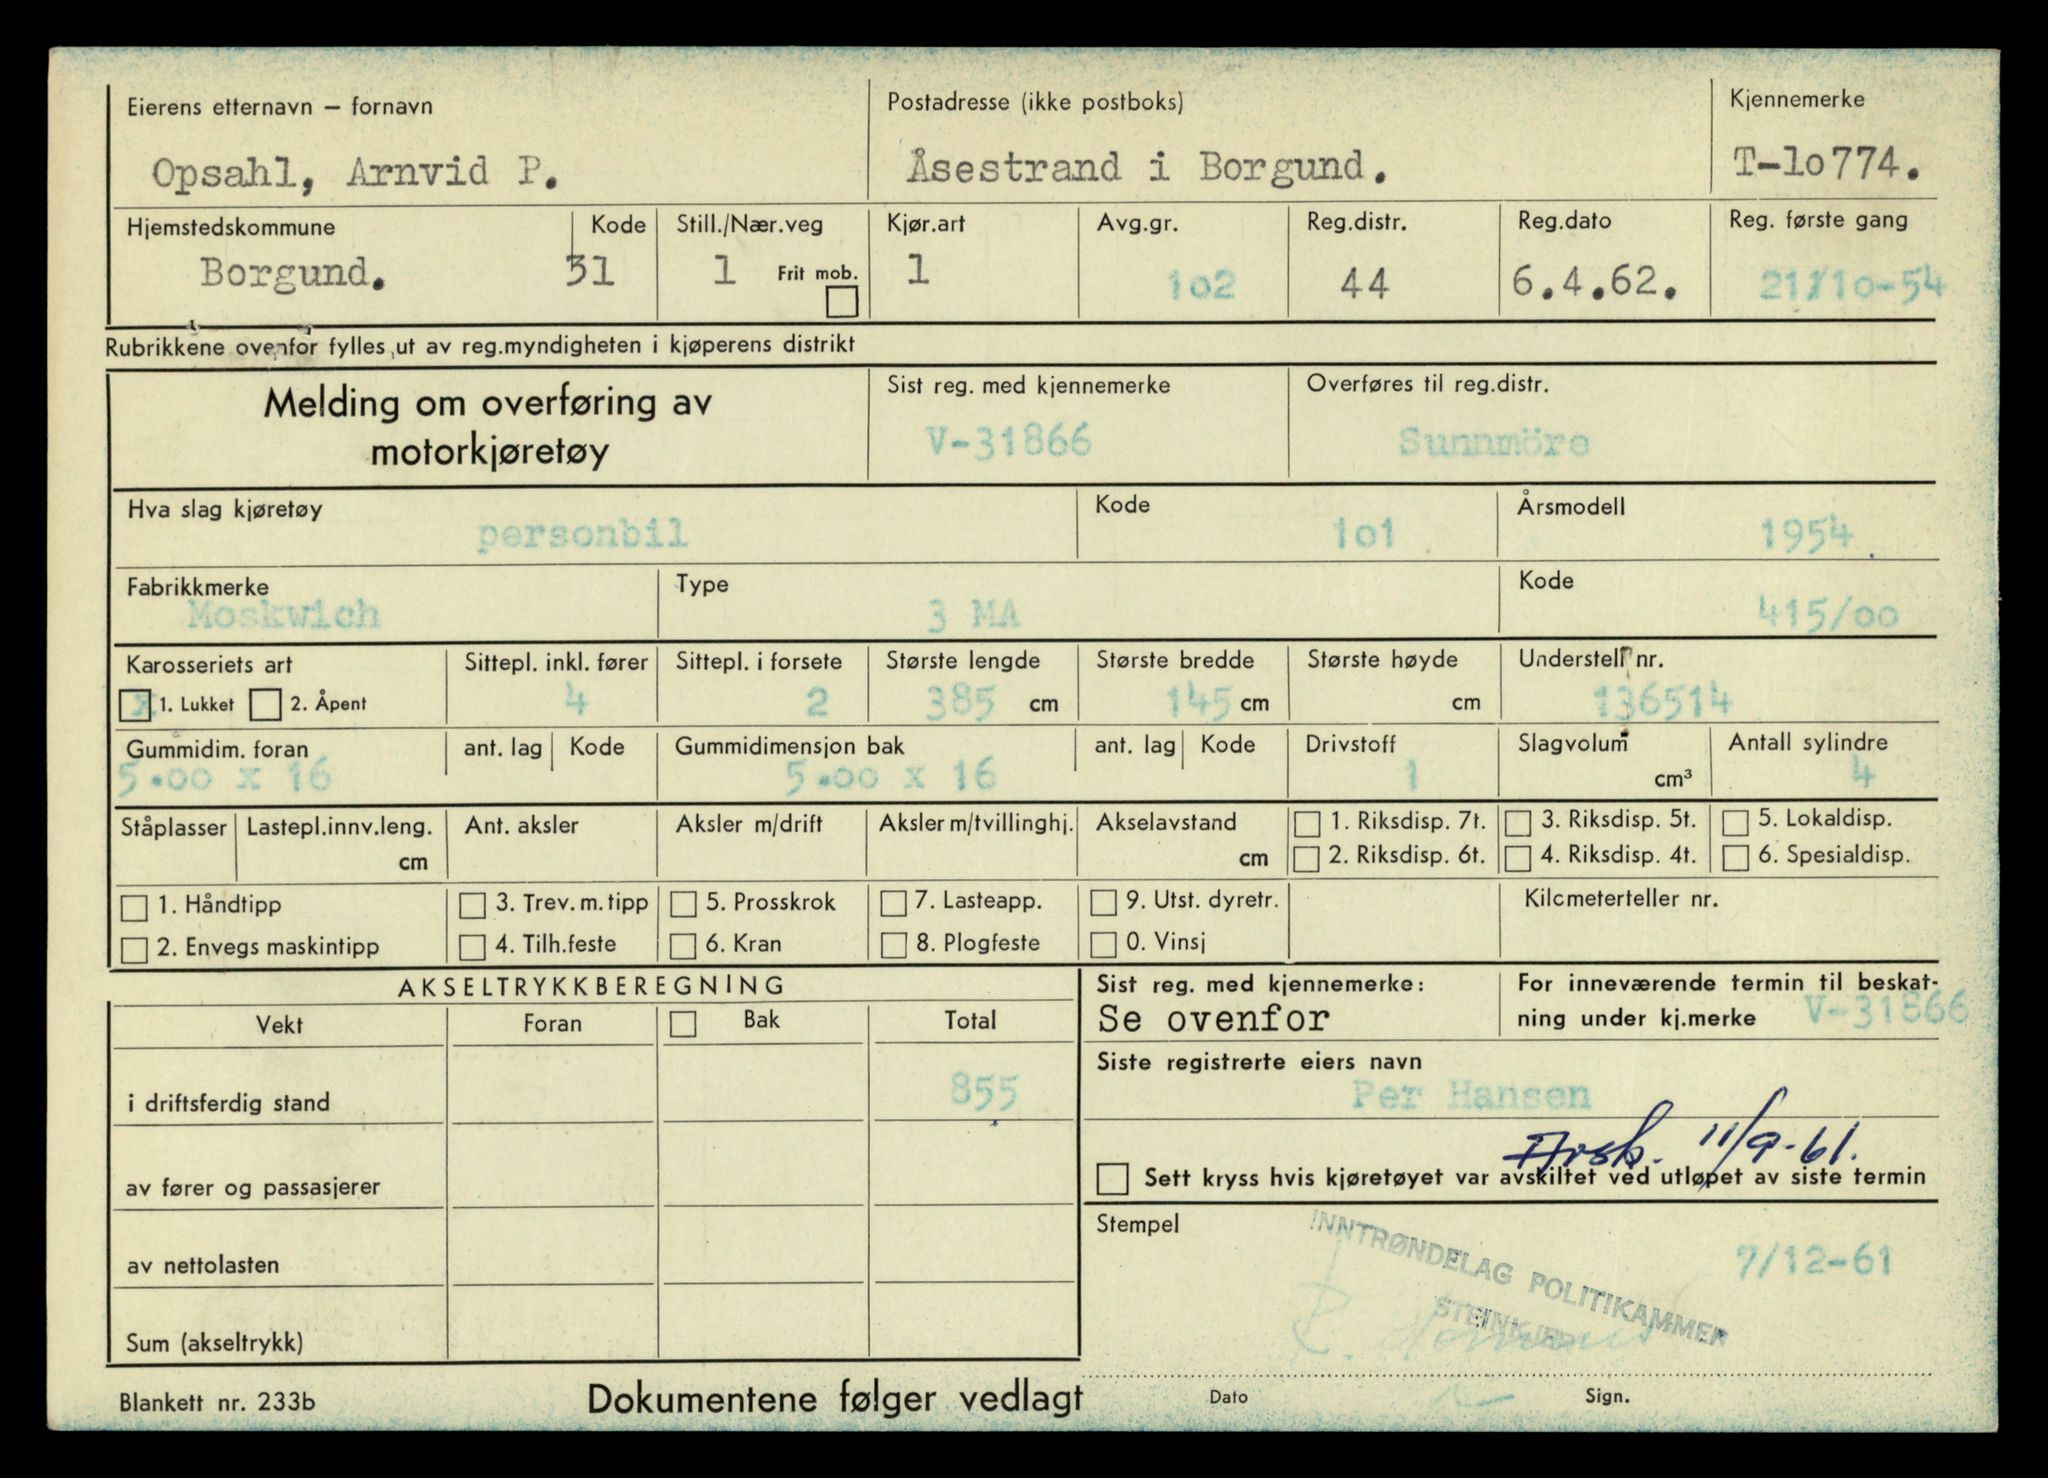 Eierens etternavn – fornavn
Postadresse (ikke postboks)
Kjennemerke
Opsahl, Arnvid P.
Åsestrand i Borgund.
T-lo774.
Hjemstedskommune
Kode
Still./Nær.veg
Kjør.art
Avg.gr.
Reg.distr.
Reg.dato
Reg. første gang
Borgund.
31
1
Frit mob.
1
102
44
6.4.62.
21/10-54
Rubrikkene ovenfor fylles ut av reg.myndigheten i kjøperens distrikt
Melding om overføring av
motorkjøretøy
Sist reg. med kjennemerke
V-31866
Overføres til reg.distr.
Sunnmöre
Hva slag kjøretøy
personbil
Kode
1o1
Årsmodell
1954
Fabrikkmerke
Moskwich
Type
3 MA
Kode
415/oo
Karosseriets art
Sittepl. inkl. fører
Sittepl. i forsete
Største lengde
Største bredde
Største høyde
Understell nr.
x 1. Lukket
2. Åpent
4
2
385 cm
145 cm
cm
136514
Gummidim. foran
ant. lag
Kode
Gummidimensjon bak
ant. lag
Kode
Drivstoff
Slagvolum
Antall sylindre
5.oo x 16
5.oo x 16
1
cm³
4
Ståplasser
Lastepl.innv.leng.
Ant. aksler
Aksler m/drift
Aksler m/tvillinghj.
Akselavstand
1. Riksdisp. 7t.
3. Riksdisp. 5t.
5. Lokaldisp.
cm
cm
2. Riksdisp. 6t.
4. Riksdisp. 4t.
6. Spesialdisp.
1. Håndtipp
3. Trev. m. tipp
5. Prosskrok
7. Lasteapp.
9. Utst. dyretr.
Kilcmeterteller nr.
2. Envegs maskintipp
4. Tilh.feste
6. Kran
8. Plogfeste
0. Vinsj
AKSELTRYKKBEREGNING
Vekt
Foran
Bak
Total
i driftsferdig stand
855
av fører og passasjerer
av nettolasten
Sum (akseltrykk)
Sist reg. med kjennemerke:
Se ovenfor
For inneværende termin til beskat-
ning under kj.merke V-31866
Siste registrerte eiers navn
Per Hansen
11/9-61.
Sett kryss hvis kjøretøyet var avskiltet ved utløpet av siste termin
Stempel
INNTRØNDELAG POLITIKAMMER
STEINKJER
7/12-61
Dato
Sign.
Blankett nr. 233b
Dokumentene følger vedlagt